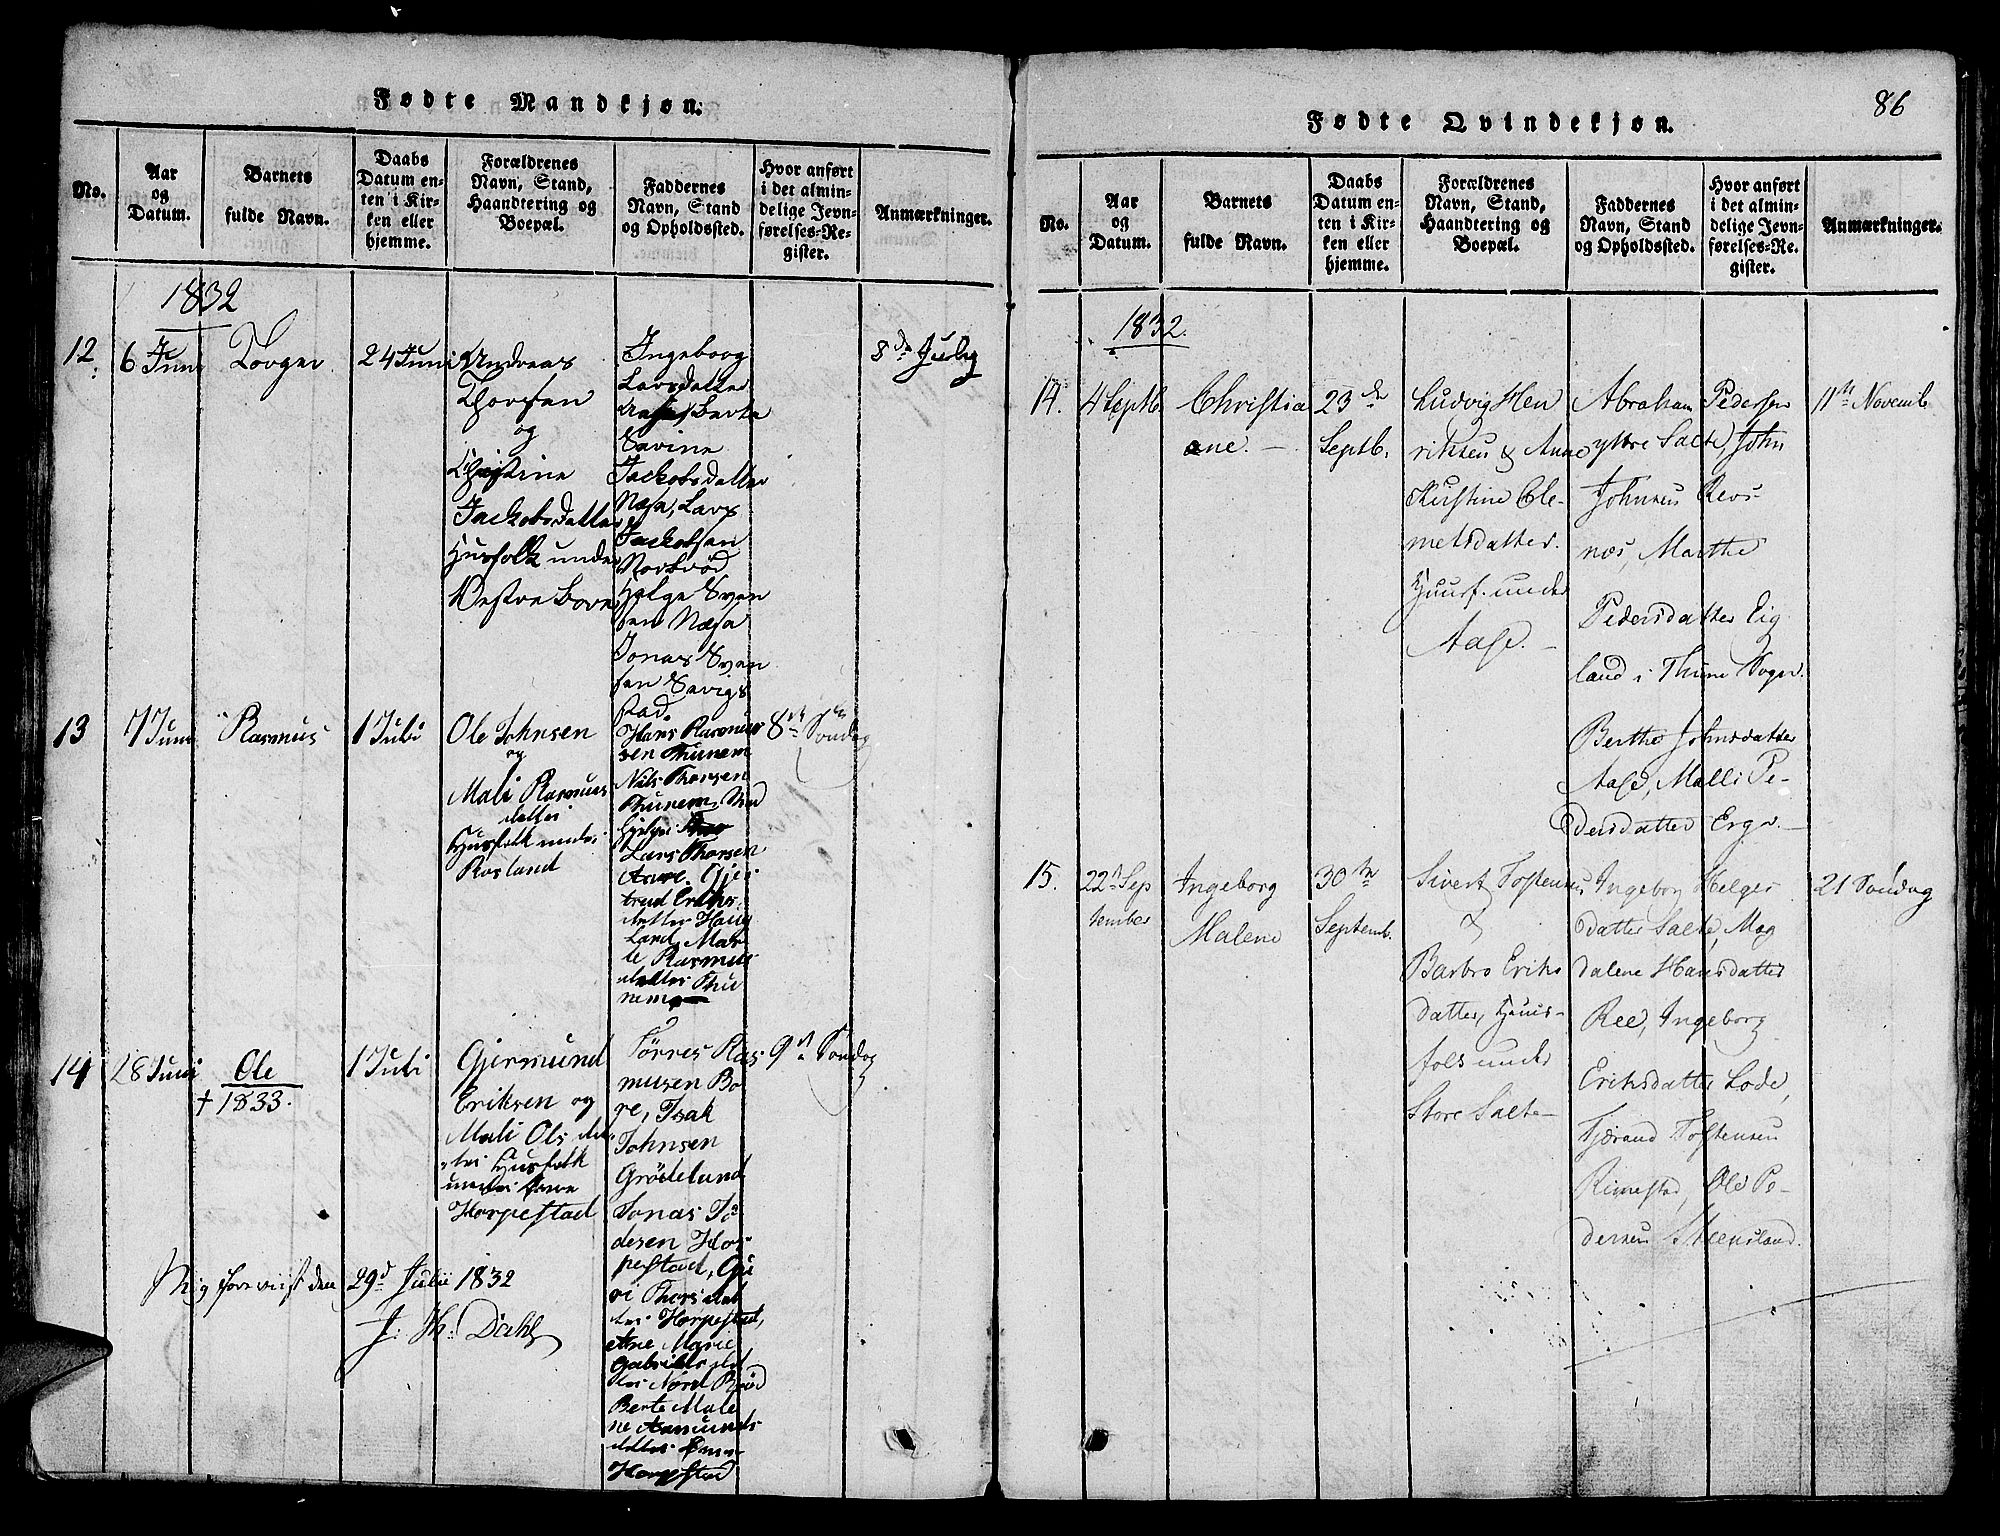 Fødte Mandkjøn.
No.
Aar
og
Datum.
Barnets
fulde Navn.
Daabs
Datum en-
ten i Kir-
ken eller
hjemme.
Forældrenes
Navn, Stand,
Haandtering og
Boepæl.
Faddernes
Navn, Stand
og Opholdssted.
Hvor anført
i det almin-
delige Jevn-
førelses-Re-
gister.
Anmærkninger.
1832
12
6 Juni
Torger
24 Juni
Andreas
Thorsen
og
Christine
Jackobsdatter
Husfolk under
Westre Bore
Ingeborg
Larsdatter
Berte
Savine
Jackobsdatter
Næse, Lars
Jackobsen
Norbrød
Helge Sven
sen Næse
Jonas Sven
sen Sevigs
stad.
8de July
13
7 Juni
Rasmus
1 Juli
Ole Johnsen
og
Mali Rasmus
datter
Husfolk under
Rosland
Hans Rasmus
sen Thunem
Nils Thorsen
Thunem,
Lars Thorsen
Aare. Gjer
trud Eriks
datter Haug
land, Mar
te Rasmus
datter Thu
nem
8de Søndag
14
28 Juni
Ole
† 1833.
1 Juli
Gjermund
Eriksen og
Mali Ols dat
ter Husfolk
under
Horpestad
Tørres Ras
musen Bo
re, Isak
Johnsen
Grødeland
Jonas To
desen Hor
pestad, Gu
ri Thors dat
ter Horpestad,
Ane Marie
Gabriels dat
ter Nord Brød
Berte Male
ne Aamunds
datter
Horpestad
9de Søndag
Mig foreviist den 29d Julii 1832
J. Th: Dahl
86
Fødte Qvindekjøn.
No.
Aar
og
Datum.
Barnets
fulde Navn.
Daabs
Datum en-
ten i Kir-
ken eller
hjemme.
Forældrenes
Navn, Stand,
Haandtering og
Boepæl.
Faddernes
Navn, Stand
og Opholdssted.
Hvor anført
i det almin-
delige Jevn-
førelses-Re-
gister.
Anmærkninger.
1832.
14.
4 Septb.
Christia
ane. —
23de
Septb.
Ludvig Hen
riksen & Anne
Kirstine Cle-
metsdatter.
Huusf. under
Aase. —
Abraham Pedersen
yttre Salte, John
Johnsen Revs-
næs, Marthe
Pedersdatter Eig
land i Thime Sogn.
Berthe Johnsdatter
Aase, Malli Pe-
dersdatter Erga. —
11te Novemb
15.
22d Sep
tember
Ingeborg
Malene
30te
Septemb.
Sivert Tostensen
&
Barbro Eriks
datter, Huus-
folk under
Store Salte —
Ingeborg Helges
datter Salte, Mag
dalene Hansdatter
Ree, Ingeborg
Eriksdatter Lode,
Tjærand Tostensen
Rimestad, Ole Pe-
dersen Steensland.
21 Søndag